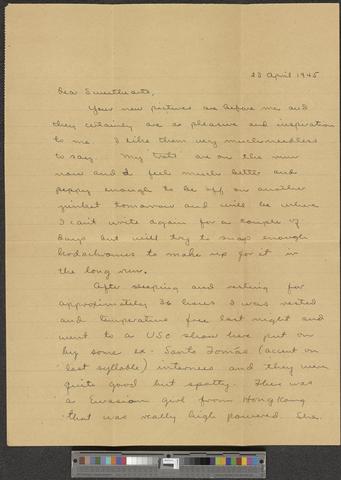 23 April 1945
Dear Sweethearts,
Your new pictures are before me and
they certainly are a pleasure and inspiration
to me. I like them very much needless
to say. My are on the
now and I feel much better and
peppy enough to be off on another
junket tomorrow and will be where
I can't write again for a couple of
days but will try to snap enough
kodachromes to make up for it in
the long run.
After sleeping and resting for
approximately 36 hours I was rested
and temperature free last night and
went to a USO show here put on
by some ex-Santo Tomas (accent on
last syllable) internees and they were
quite good but spotty. There was
a Eurasian girl from Hong Kong
that was really high powered. She